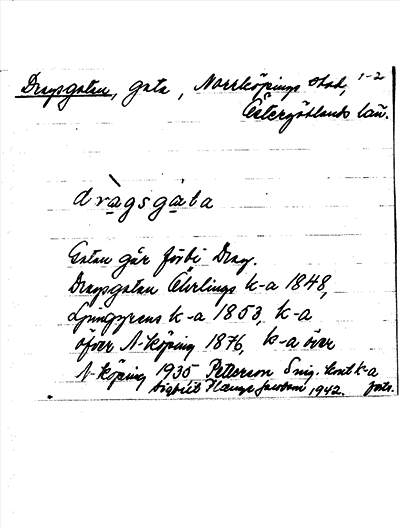 Dragsgatan, gata, Norrköpings stad, 1-2
Östergötlands län.
dràgsgàta
Gatan går förbi Drag.
Dragsgatan Öhrlings k-a 1848,
Ljunggrens k-a 1853, k-a
öfver N-köping 1876, k-a över
N-köping 1935 Petterson Smg. k-a
Sigbrit Plænge Jacobson, 1942. forts.